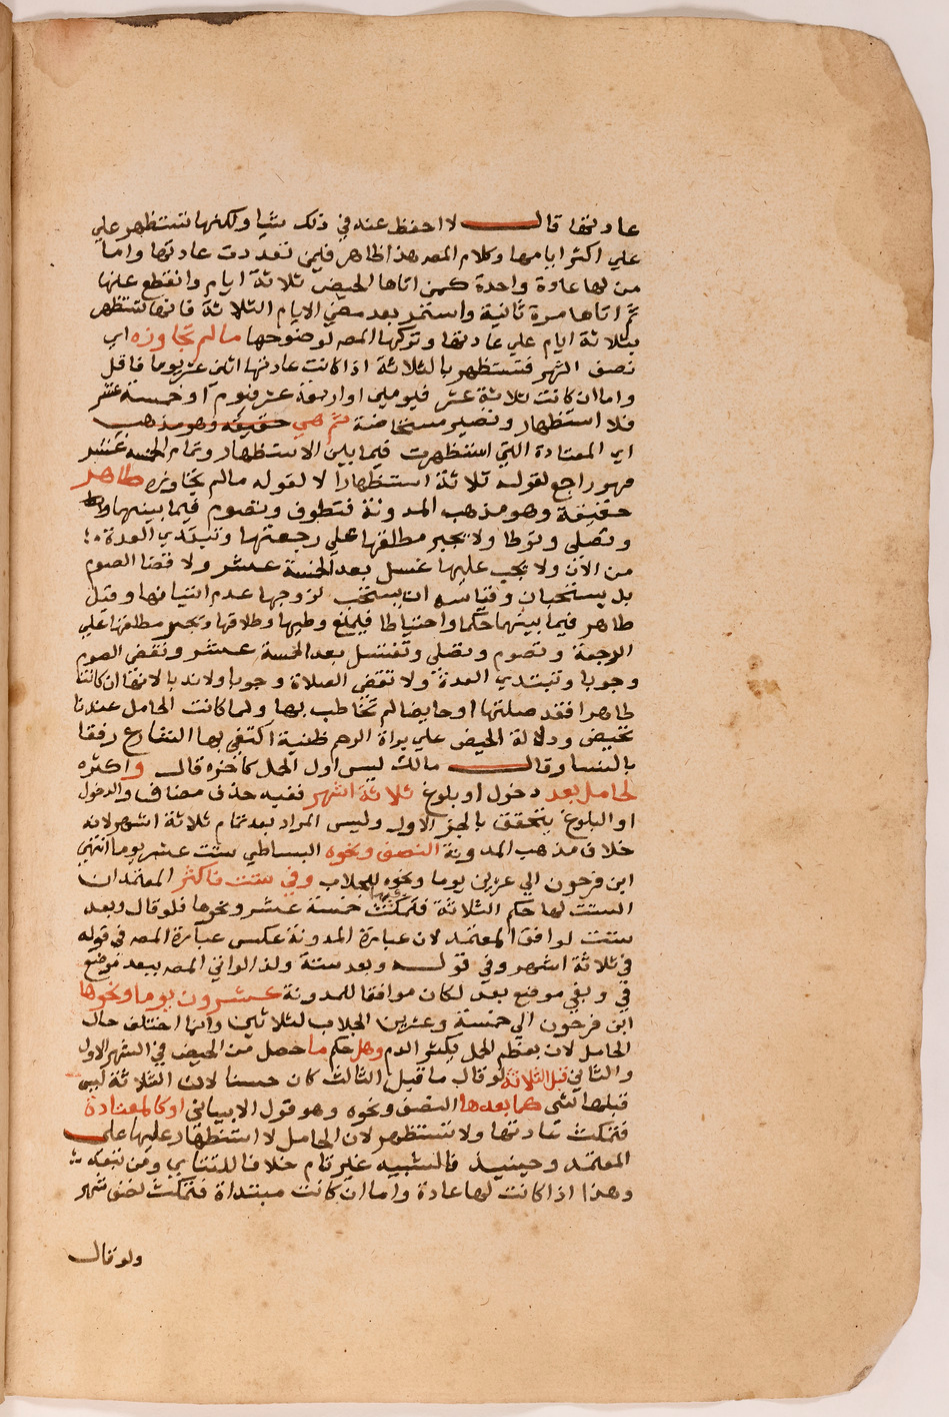 عادتها قال لا احفظ عنه في ذلك شيا ولكنها تستظهر علي
علي اكثر ايامها وكلام المص هذا ظاهر فيمن تعددت عادتها واما
من لها عادة واحدة كمن اتاها الحيض ثلاثة ايام وانقطع عنها
ثم اتاها مرة ثانية واستمر بعد مضي الايام الثلاثة فانها تستظهر
بثلاثة ايام علي عادتها وتركها المص لوضوحها ما لم تجاوزه اي
نصف الشهر فتستظهر بالثلاثة اذا كانت عادتها اثني عشر يوما فاقل
واما ان كانت ثلاثة عشر فيومين او اربعة عشر فيوم او خمسة عشر
فلا استظهار وتصير مستحاضة ثم هي حقيقة وهو مذهب
اي المعتادة التي استظهرت فيما بين الاستظهار وتمام الخمسة عشر
فهو راجع لقوله ثلاثة استظهارا لا لقوله ما لم تجاوزه طاهر
حقيقة وهو مذهب المدونة فتطوف وتصوم فيما بينهما
وتصلي وتوطا ولا يجبر مطلقها علي رجعتها وتبتدي العدة
من الان ولا يجب عليها غسل بعد الخمسة عشر ولا قضا الصوم
بل يستحبان وقياسه ان يستحب لزوجها عدم اتيانها وقيل
طاهر فيما بينهما حكما واحتياطا فيمنع وطيها وطلاقها ويجبر مطلقها علي
الرجعة وتصوم وتصلي وتغتسل بعد الخمسة عشر وتقضي الصوم
وجوبا وتبتدي العدة ولا تقضي الصلاة وجوبا ولا ندبا لانها ان كانت
طاهرا فقد صلتها او حايضا لم تخاطب بها ولما كانت الحامل عندنا
تحيض ودلالة الحيض علي براة الرحم ظنية اكتفي بها الشارع رفقا
بالنسا وقال مالك ليس اول الحمل كاخره قال واكثره
لحامل بعد دخول او بلوغ ثلاثة اشهر ففيه حذف مضاف والدخول
او البلوغ يتحقق بالجز الاول وليس المراد بعد تمام ثلاثة اشهر لانه
خلاف مذهب المدونة النصف ونحوه البساطي ستت عشر يوما انتهي
ابن فرحون الي عشرين يوما ونحوه للجلاب وفي ستت فاكثر المعتمد ان
الستت لها حكم الثلاثة فتمكث خمسة عشر ونحوها فلو قال وبعد
ستت لوافق المعتمد لان عبارة المدونة عكس عبارة المص في قوله
في ثلاثة اشهر وفي قوله وبعد ستة ولذا لو اتي المص ببعد موضع
في وبفي موضع بعد لكان موافقا للمدونة عشرون يوما ونحوها
ابن فرحون الي خمسة وعشرين الجلاب لثلاثين وانما اختلف حال
الحامل لان بعظم الحمل يكثر الدم وهل حكم ما حصل من الحيض في الشهر الاول
والثاني قبل الثلاثة لو قال ما قبل الثالث كان حسنا لان الثلاثة ليس
قبلها شي كما بعدها النصف ونحوه وهو قول الابياني او كالمعتادة
فتمكث عادتها ولا تستظهر لان الحامل لا استظهار عليها علي
المعتمد وحينيذ فالتشبيه غير تام خلافا للتتاي ومن تبعه
وهذا اذا كانت لها عادة واما ان كانت مبتداة فتمكث نصف شهر
ولو قال